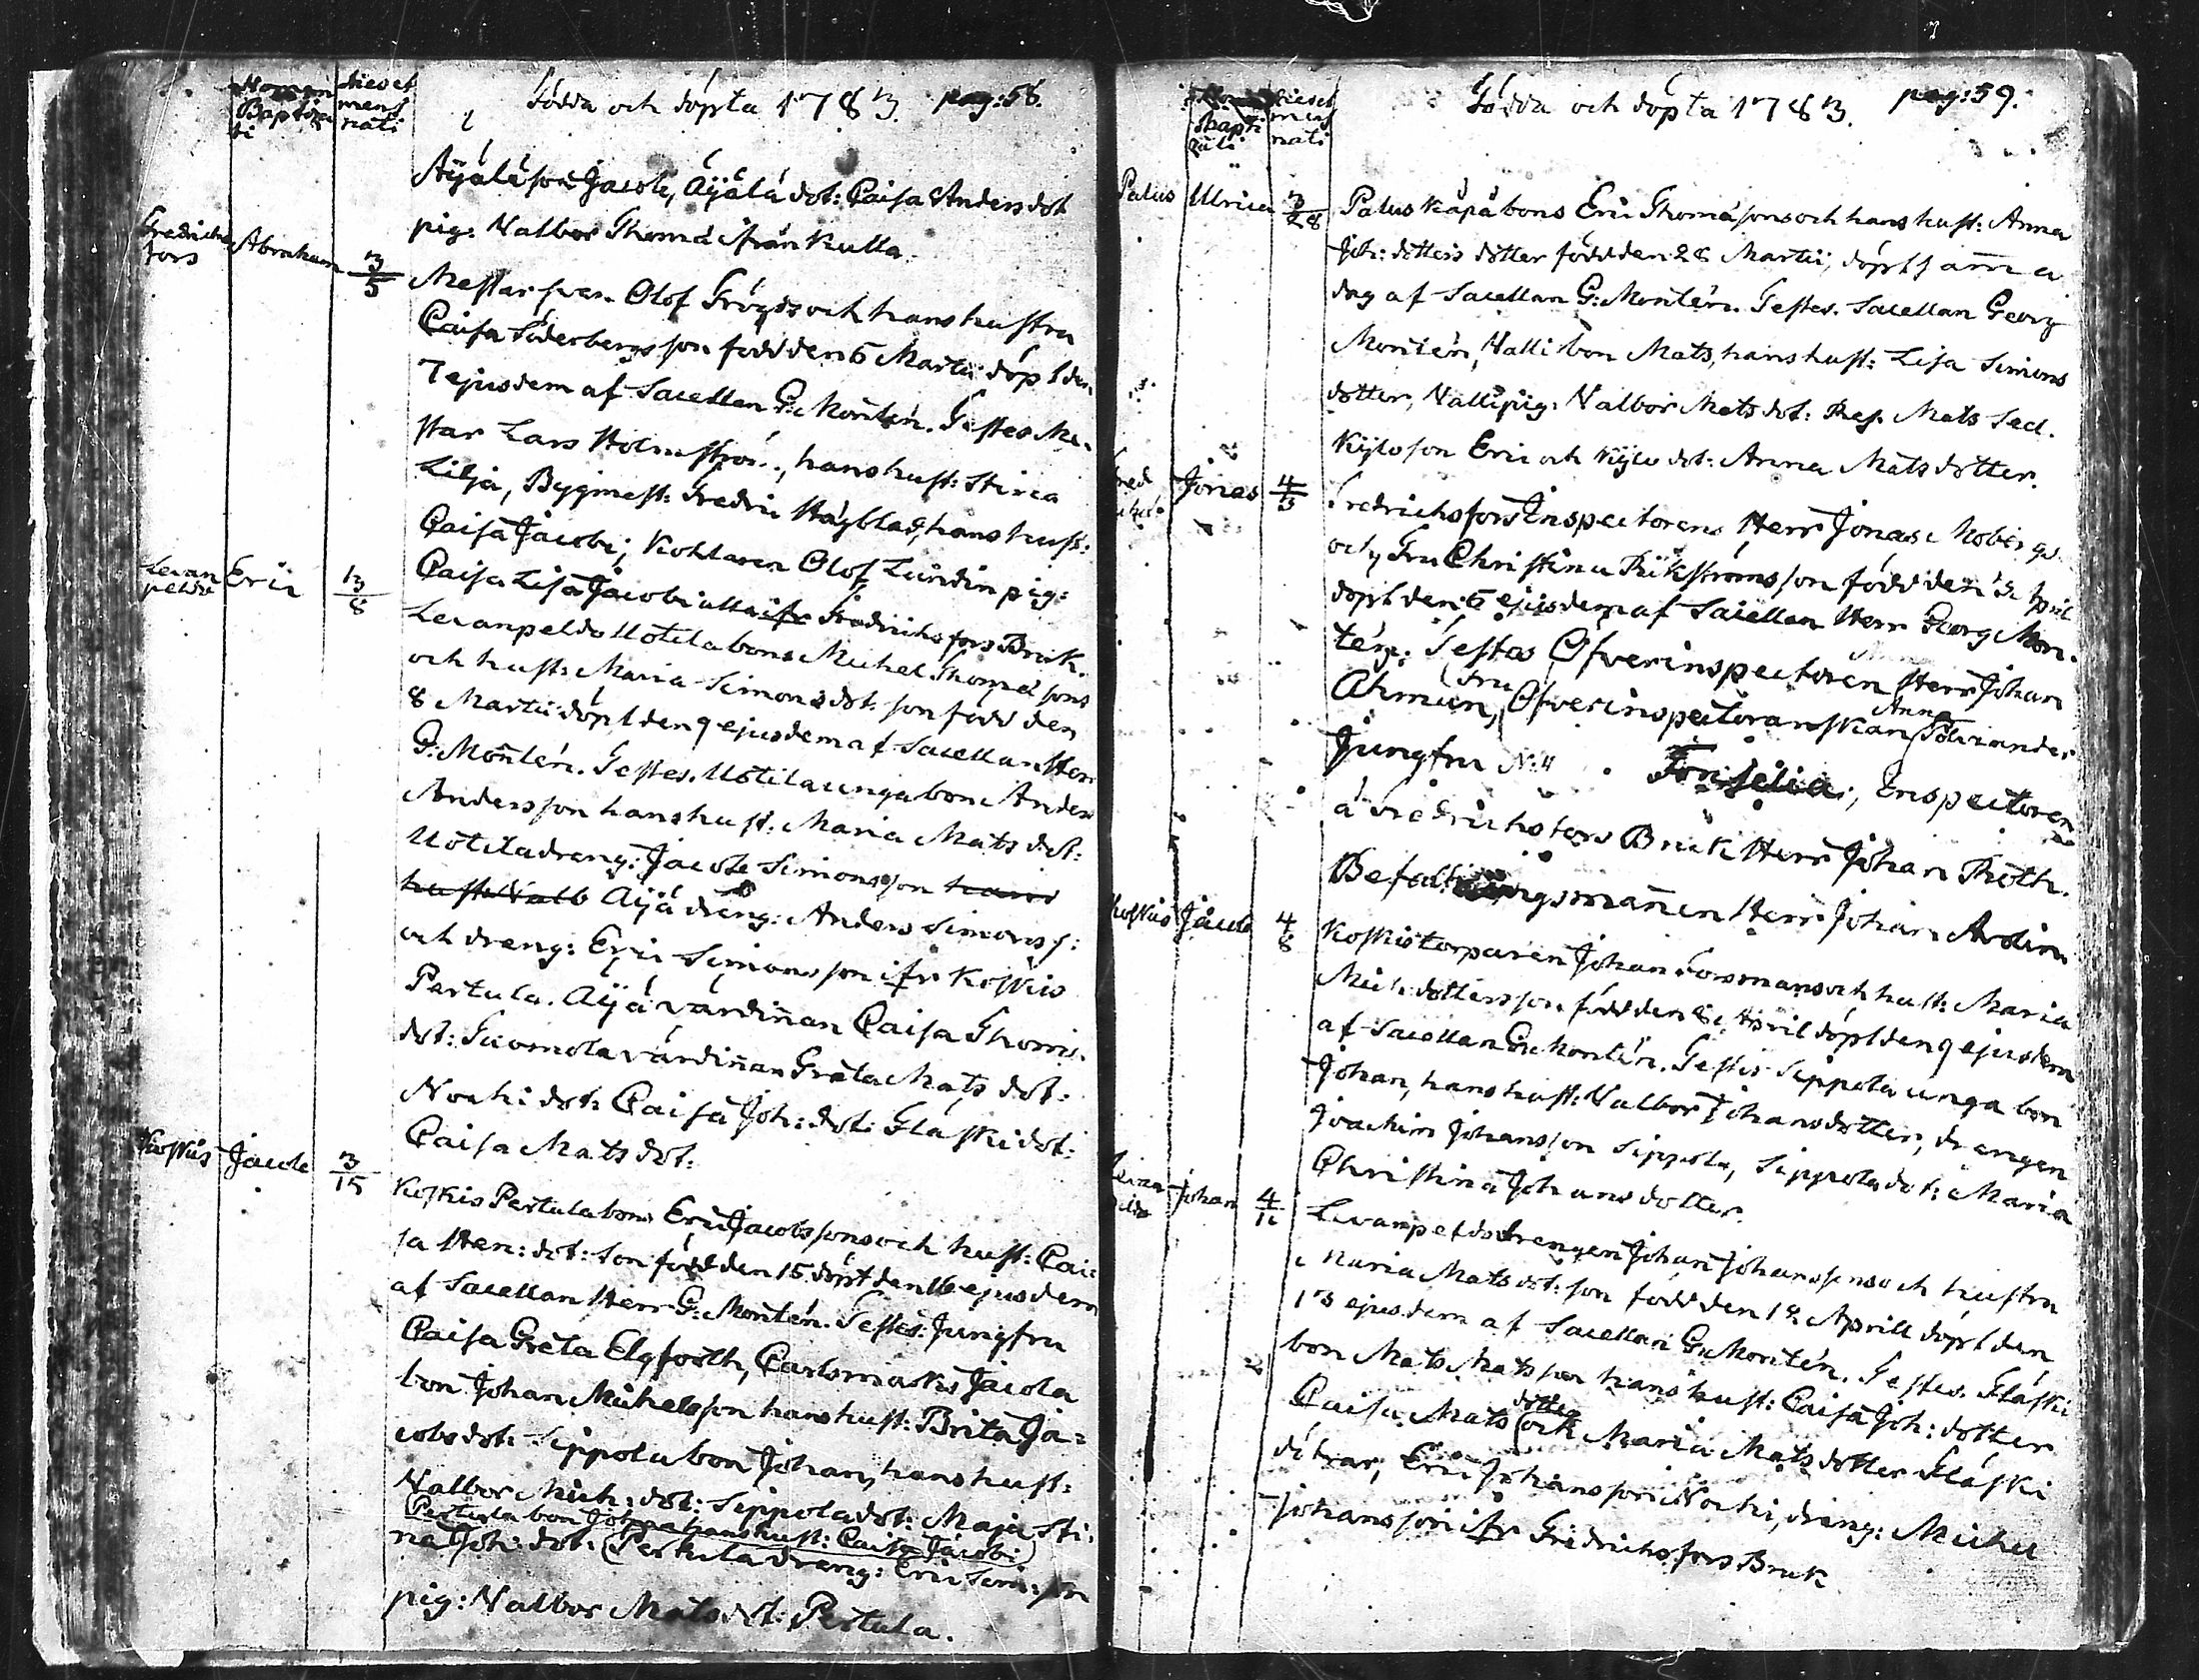 Nomen
Baptiza
ti
dies et
mens
nati
Födda och döpta 1783. pag: 58.
Äÿälä son Jacob, Äÿälä dot: Caisa Anders dot
pig: Valbor Thomä ifrån Kulla.
Fredrichs
fors
Abraham
3/5
Mestarsven. Olof Frögds och hans hustru
Caisa Söderbergs son född den 5 Martii döpt den
7 ejusdem af Sacellan G: Montén. Testes Me-
star Lars Holmström, hans hust: Stina
Lilja, Bygmest: Fredric Hägblad, hans hust:
Caisa Jacobi, Kohlaren Olof Lundin pig:
Caisa Lisa Jacobi alla ifr Fredrichsfors Bruk.
Levan
peldo
Eric
3/8
Levanpeldo Uotila bons Michel Thomä sons
och hust: Maria Simons dot: son född den
8 Martii döpt den 9 ejusdem af Sacellan Herr
G: Montén. Testes. Uotila unga bon Anders
Andersson hans hust: Maria Mats dot:
Uotila dreng: Jacob Simonsson hans
hust: Valb Äÿä dreng: Anders Simons s:
och dreng: Eric Simonsson ifr Koskis
Pertula. Äÿä värdinan Caisa Thoms.
dot: Tuomola värdinan Greta Mats dot:
Nochi dot: Caisa Joh: dot: Fläski dot:
Caisa Mats dot:
Koskis
Jacob
3/15
Koskis Pertula bons Eric Jacobssons och hust: Cai-
sa Hen: dot: Son född den 15 döpt den 16 ejusdem
af Sacellan Herr G: Montén. Testes: Jungfru
Caisa Greta Elgforth, Carlsmarks Jacola
bon Johan Michelsson hans hust: Brita Ja-
cobs dot: Sippola bon Johan, hans hust:
Valbor Mich: dot: Sippola dot: Maja Sti-
Pertula bon Johan hans hust: Caisa Jacobi
na Joh: dot: Pertula dreng: Eric Sim: son
pig: Valbor Mats dot: Pertula.
Baptizati
dies et
mens
nati
Födda och döpta 1783. pag: 59.
Palus
Ulrica
3/28
Palus Käpä bons Eric Thomä sons och hans hust: Anna
Joh: dotters dotter född den 28 Martii, döpt samma
dag af Sacellan G: Montén. Testes. Sacellan Georg
Montén, Halli bon Mats, hans hust: Lisa Simons
dotter, Valli pig: Valbor Mats dot: Mats Sed.
Kÿlo son Eric och Kÿlo dot: Anna Mats dotter.
Jonas
4/3
Fredrichsfors Inspectorens Herr Jonas Mobergs
och Fru Christina Rikströms son född den 3 April
döpt den 5 ejusdem af Sacellan Herr Georg Mon-
tén. Testes Öfverinspectoren Herr Johan
Ahmun, Fru Öfverinspectoranskan Anna
Jungfru N: N , Enspectoren
å Fredrichsfors Bruk Herr Johan Roth.
Befallningsmannen Herr Johan Ardin
Koskis
Jacob
4/8
Koskis torparen Johan Forsmans och hust: Maria
Mich: dotters son född den 8 April döpt den 9 ejusdem
af Sacellan G: Montén. Testes Sippola unga bon
Johan, hans hust: Valbor Johans dotter, drengen
Joachim Johansson Sippola, Sippola dot: Maria
Christina Johans dotter.
Levan
peldo
Johan
4/12
Levanpeldo drengen Johan Johanssons och hustru
Maria Mats dot: son född den 12 Aprill döpt den
13 ejusdem af Sacellan G: Montén. Testes. Fläski
bon Mats Matsson hans hust: Caisa Joh: dotter
Caisa Mats dotter och Maria Mats dotter Fläski
dötrar, Eric Johansson Nochi, dräng: Michel
Johansson ifr Fredrichsfors Bruk